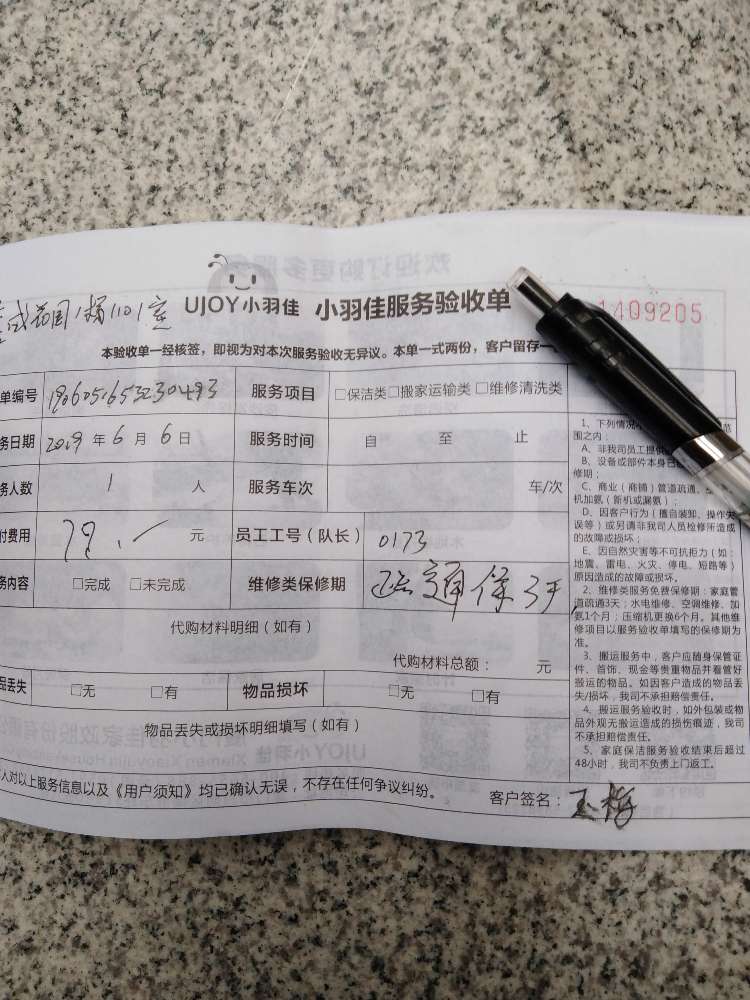 UJOY小羽佳 小羽佳服务验收单 1409205
成花园1楼1101室
本验收单一经核签，即视为对本次服务验收无异议。本单一式两份，客户留存一
单编号 服务项目 □保洁类□搬家运输类□维修清洗类
务日期 2019 年 6 月 6 日 服务时间 自 至 止
务人数 1 人 服务车次 车/次
付费用 79.- 元 员工工号（队长） 0173
务内容 □完成 □未完成 维修类保修期 疏通保3天
代购材料明细（如有）
代购材料总额： 元
品丢失 □无 □有 物品损坏 □无 □有
物品丢失或损坏明细填写（如有）
人对以上服务信息以及《用户须知》均已确认无误，不存在任何争议纠纷。 客户签名：
1、下列情况
范
围之内：
A、非我司员工提供
B、设备或部件本身已
修期；
C、商业（商铺）管道疏通、
机加氨（新机或漏氨；
D、因客户行为（擅自装卸、操作失
误等）或另请非我司人员检修所造成
的故障或损坏；
E、因自然灾害等不可抗拒力（如：
地震、雷电、火灾、停电、短路等）
原因造成的故障或损坏。
2、维修类服务免费保修期：家庭管
道疏通3天；水电维修、空调维修、加
氨1个月；压缩机更换6个月。其他维
修项目以服务验收单填写的保修期为
准。
3、搬运服务中，客户应随身保管证
件、首饰、现金等贵重物品并看管好
搬运的物品。如因客户造成的物品丢
失/损坏，我司不承担赔偿责任。
4、搬运服务验收时，如外包装或物
品外观无搬运造成的损伤痕迹，我司
不承担赔偿责任。
5、家庭保洁服务验收结束后超过
48小时，我司不负责上门返工。